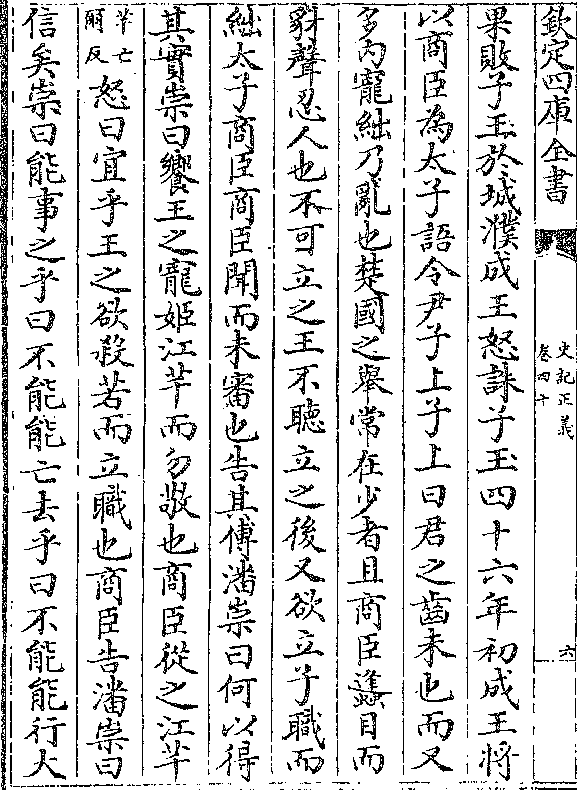 欽定四庫全書
史記正義
卷四十
六
果敗子玉於城濮成王怒誅子玉四十六年初成王將
以商臣為太子語令尹子上子上曰君之齒未也而又
多內寵絀乃亂也楚國之舉常在少者且商臣蠭目而
豺聲忍人也不可立之王不聽立之後又欲立子職而
絀太子商臣商臣聞而未審也告其傅潘崇曰何以得
其實崇曰饗王之寵姬江芉而勿敬也商臣從之江芉
芉亡
爾反
怒曰宜乎王之欲殺若而立職也商臣告潘崇曰
信矣崇曰能事之乎曰不能能亡去乎曰不能能行大